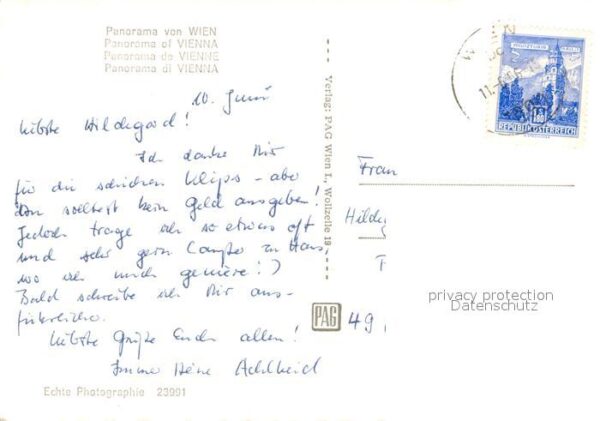 Panorama von WIEN
Panorama of VIENNA
Panorama de VIENNE
Panorama di VIENNA
10. Juni
Liebste Hildegard!
Ich danke Dir
für die schicken Klips – aber
Du solltest kein Geld ausgeben!
Jedoch trage ich so etwas oft
und sehr gern
wo ich mich geniere!)
Bald schreibe ich Dir aus-
führlicher.
Liebste Grüße Euch allen!
Immer Deine Adelheid
Echte Photographie 23991
Verlag: PAG Wien I., Wollzeile 19
PAG
WIEN
REPUBLIK ÖSTERREICH
1.80
Frau
Hildeg
49
privacy protection
Datenschutz